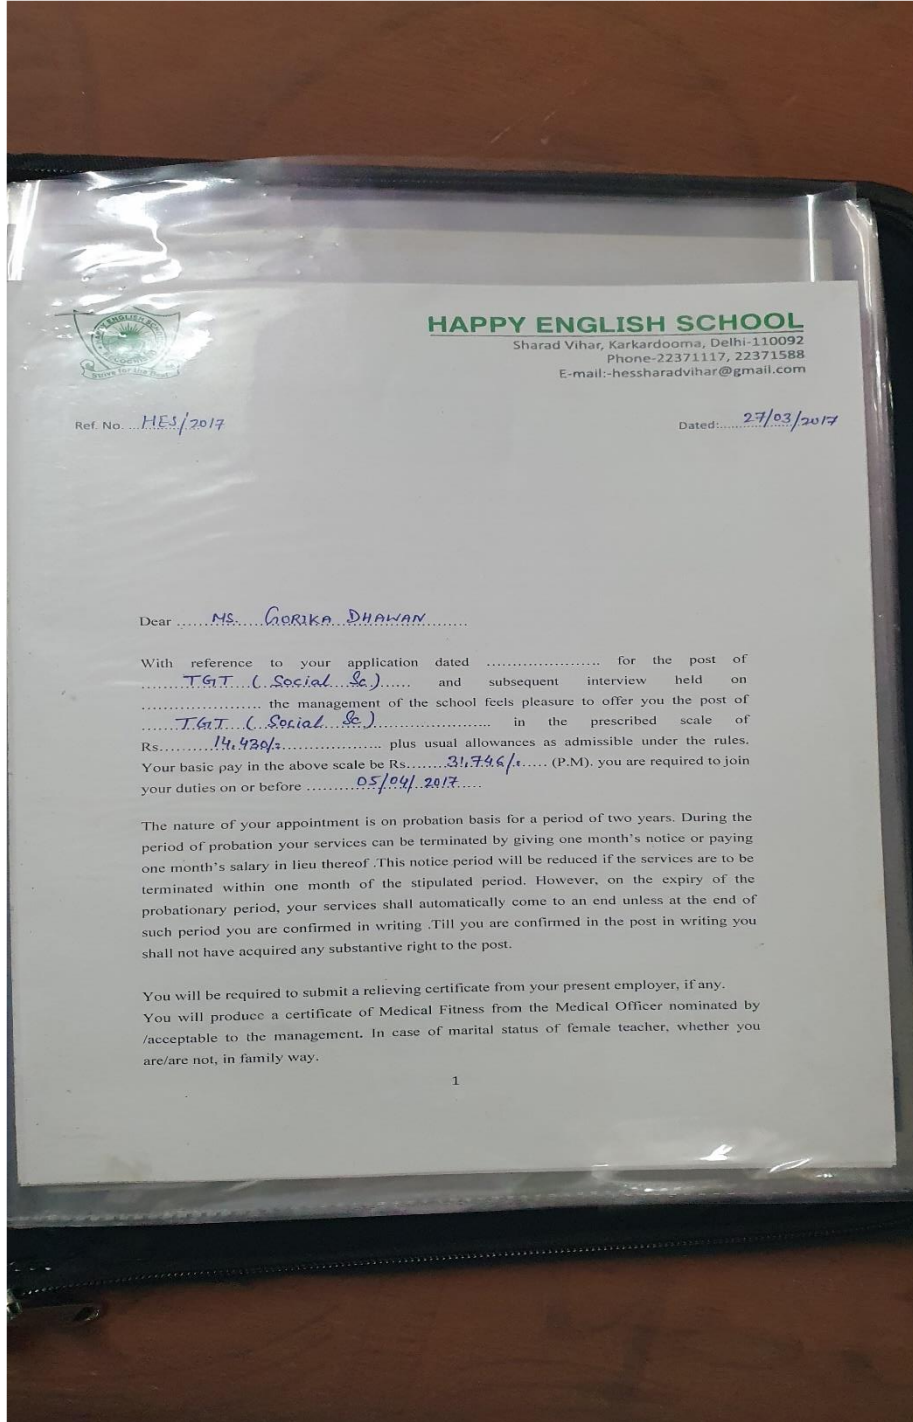 HAPPY ENGLISH SCHOOL
Sharad Vihar, Karkardooma, Delhi-110092
Phone-22371117, 22371588
E-mail:-hessharadvihar@gmail.com
Ref. No. ...HES/2017
Dated:......27/03/2017
Dear ......MS. GORIKA DHAWAN.........
With reference to your application dated ..................... for the post of
.......TGT (Social Sc)...... and subsequent interview held on
...................... the management of the school feels pleasure to offer you the post of
......TGT (Social Sc)...................... in the prescribed scale of
Rs..........14,430/=................... plus usual allowances as admissible under the rules.
Your basic pay in the above scale be Rs........31,746/=..... (P.M). you are required to join
your duties on or before ..........05/04/2017.....
The nature of your appointment is on probation basis for a period of two years. During the
period of probation your services can be terminated by giving one month's notice or paying
one month's salary in lieu thereof .This notice period will be reduced if the services are to be
terminated within one month of the stipulated period. However, on the expiry of the
probationary period, your services shall automatically come to an end unless at the end of
such period you are confirmed in writing .Till you are confirmed in the post in writing you
shall not have acquired any substantive right to the post.
You will be required to submit a relieving certificate from your present employer, if any.
You will produce a certificate of Medical Fitness from the Medical Officer nominated by
/acceptable to the management. In case of marital status of female teacher, whether you
are/are not, in family way.
1